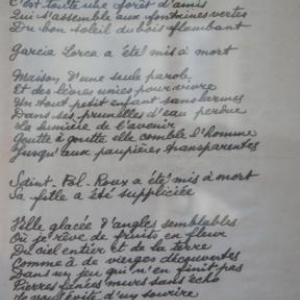 C'est toute une forêt d'amis
Qui s'assemble aux fontaines vertes
Du bon soleil du bois flambant
Garcia Lorca a été mis à mort
Maison d'une seule parole
Et des lèvres unies pour vivre
Un tout petit enfant sans larmes
Dans ses prunelles d'eau perdue
La lumière de l'avenir
Goutte à goutte elle comble l'homme
Jusqu'aux paupières transparentes
Saint-Pol-Roux a été mis à mort
Sa fille a été suppliciée
Ville glacée d'angles semblables
Où je rêve de fruits en fleur
Du ciel entier et de la terre
Comme à de vierges découvertes
Dans un jeu qui n'en finit pas
Pierres fanées murs sans écho
Je vous évite d'un sourire